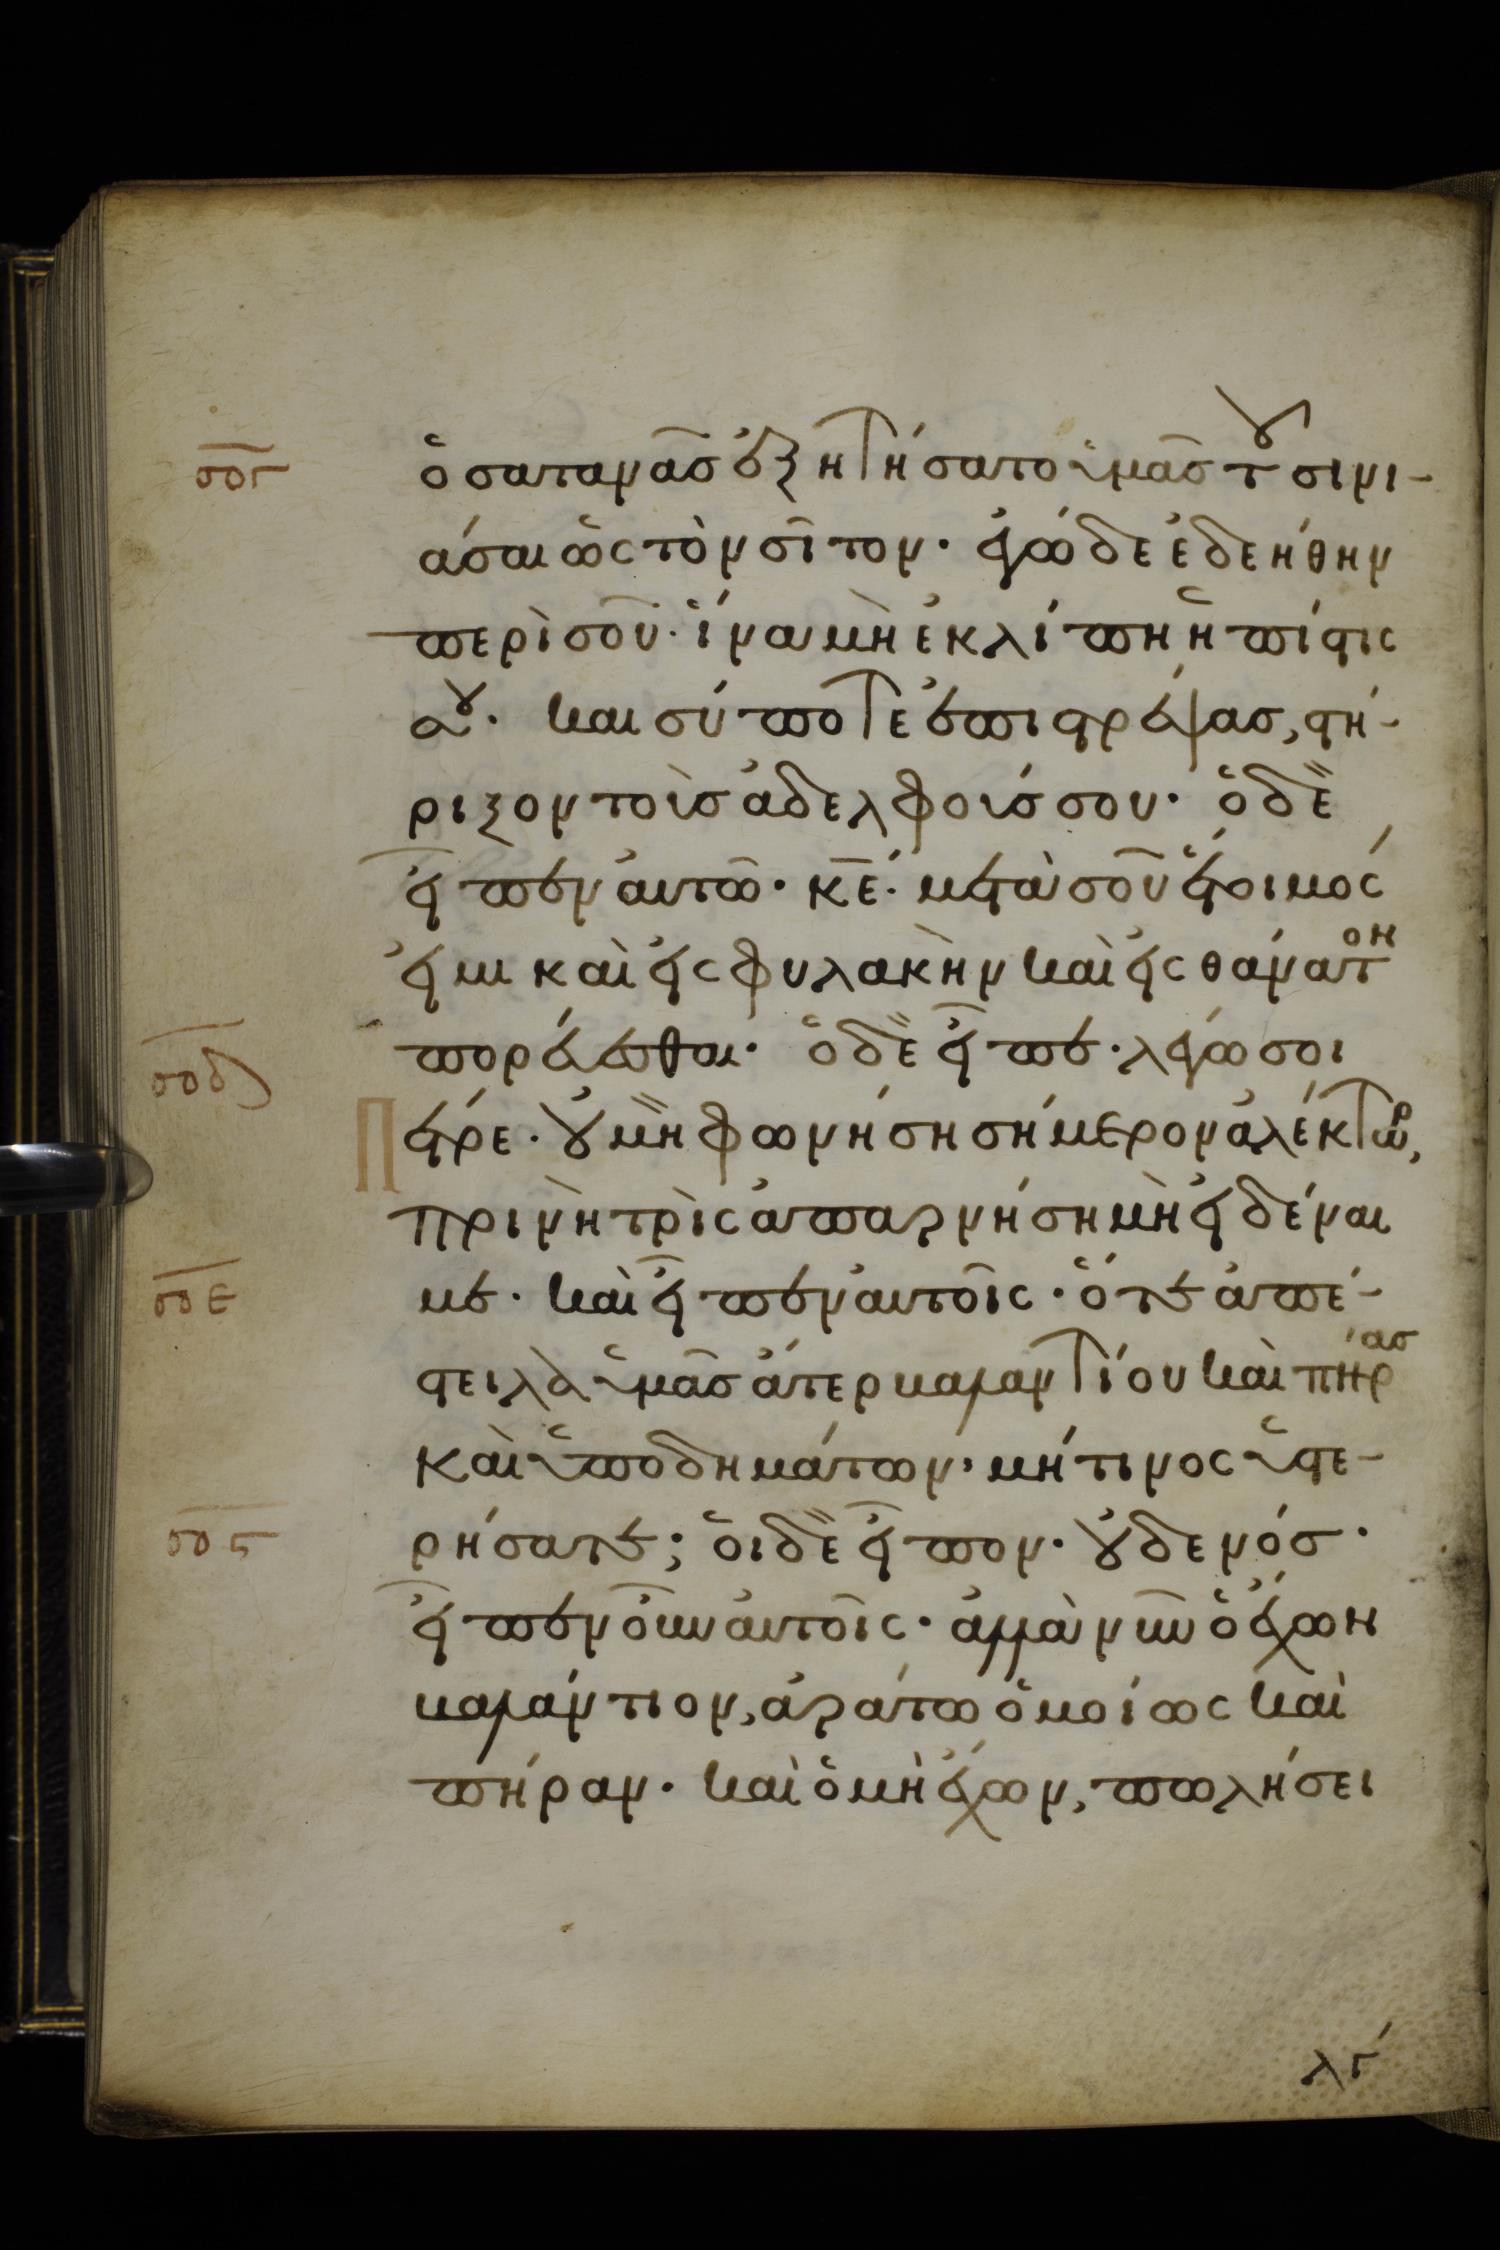 σογ
ὁ σατανᾶσ ἐξητήσατο ὑμᾶσ τοῦ σινι-
άσαι ὡς τὸν σῖτον· ἐγὼ δὲ ἐδεήθην
περὶ σοῦ· ἵνα μὴ ἐκλίπη ἡ πίστις
σου. και σύ ποτε ἐπιστρέψασ, στή-
ριξον τοὺσ ἀδελφούσ σου· ὁ δὲ
εἶπεν αὐτῶ· κε· μετὰ σοῦ ἕτοιμός
εἰμι καὶ εἰς φυλακὴν καὶ εἰς θάνατον
πορεύεσθαι· ὁ δὲ εἶπε· λέγω σοι
σοδ
Πέτρε· οὐ μὴ φωνήση σήμερον ἀλέκτωρ,
πρινὴ τρὶς ἀπαρνήση μὴ εἰδέναι
σοε
με· καὶ εἶπεν αὐτοῖς· ὅτε ἀπέ-
στειλα ὑμᾶσ ἄτερ βαλαντίου καὶ πήρασ
καὶ ὑποδημάτων· μή τινος ὑστε-
σος
ρήσατε; οἱ δὲ εἶπον· οὐδενόσ·
εἶπεν οὖν αὐτοῖς· ἀλλὰ νῦν ὁ ἔχων
βαλάντιον, ἀράτω ὁμοίως καὶ
πήραν· καὶ ὁ μὴ ἔχων, πωλήσει
λγ